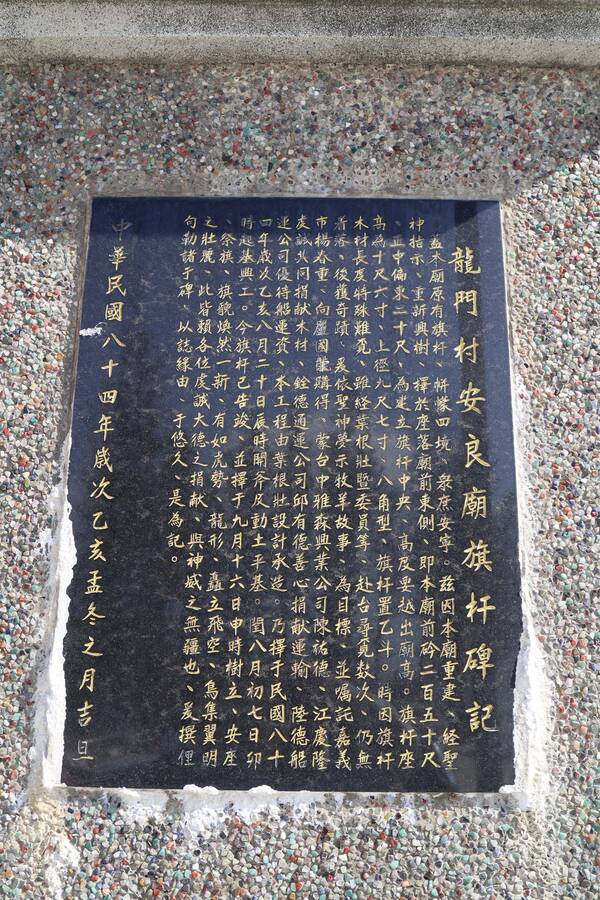 龍門村安良廟旗杆碑記
蓋本廟原有旗杆、帡幪四境、衆庶安寧。茲因本廟重建、經聖
神指示、重新興樹、擇於座落廟前東側、即本廟前砱二百五十尺
、正中偏東二十尺、為建立旗杆中央、高度要越出廟高。旗杆座
高為十尺六寸、上徑九尺七寸、八角型、旗杆置乙斗。時因旗杆
木材長度特殊難覓、雖經葉根壯暨委員等、赴台尋覓數次、仍無
着落、後獲奇蹟、爰依聖神夢示牧羊故事、為目標、並囑託嘉義
市楊春重、向蘆國肇購得、蒙台中雅森興業公司陳祐德、江慶隆
虔誠共同捐献木材、銓德通運公司邱有德善心捐献運輸、陸德船
運公司優待船運資、本工程由葉根壯設計承造。乃擇于民國八十
四年歲次乙亥八月二十日辰時開斧及動土平基。閏八月初七日卯
時起基興工。今旗杆已告竣、並擇于九月十六日申時樹立、安座
、祭旗、旗貌煥然一新、有如虎勢、龍形、矗立飛空、鳥集翼明
之壯麗、此皆賴各位虔誠大德之捐献、與神威之無疆也、爰撰俚
句勒諸于碑、以誌緣由、于悠久、是為記。
中華民國八十四年歲次乙亥孟冬之月吉旦